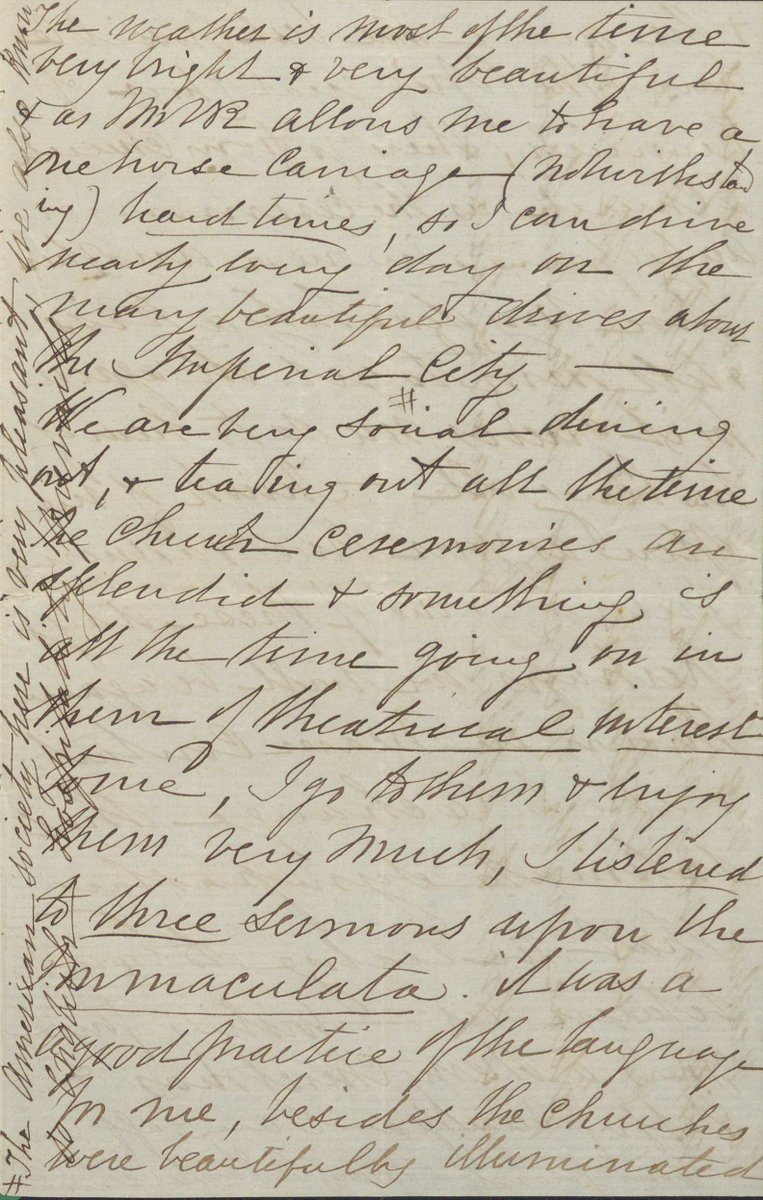 The weather is most of the time
very bright & very beautiful
& as Mr R allows me to have a
one horse Carriage (notwithstand
ing) hard times, so I can drive
nearly every day on the
many beautiful drives about
the Imperial City —
We are very social # dining
out, & teaing out all the time
the church ceremonies are
splendid & something is
all the time going on in
them of theatrical interest
to me, I go to them & enjoy
them very much, I listened
to three sermons upon the
Immaculata. it was a
good practice of the language
for me, besides the churches
were beautifully illuminated
# The American society here is very pleasant, we also know